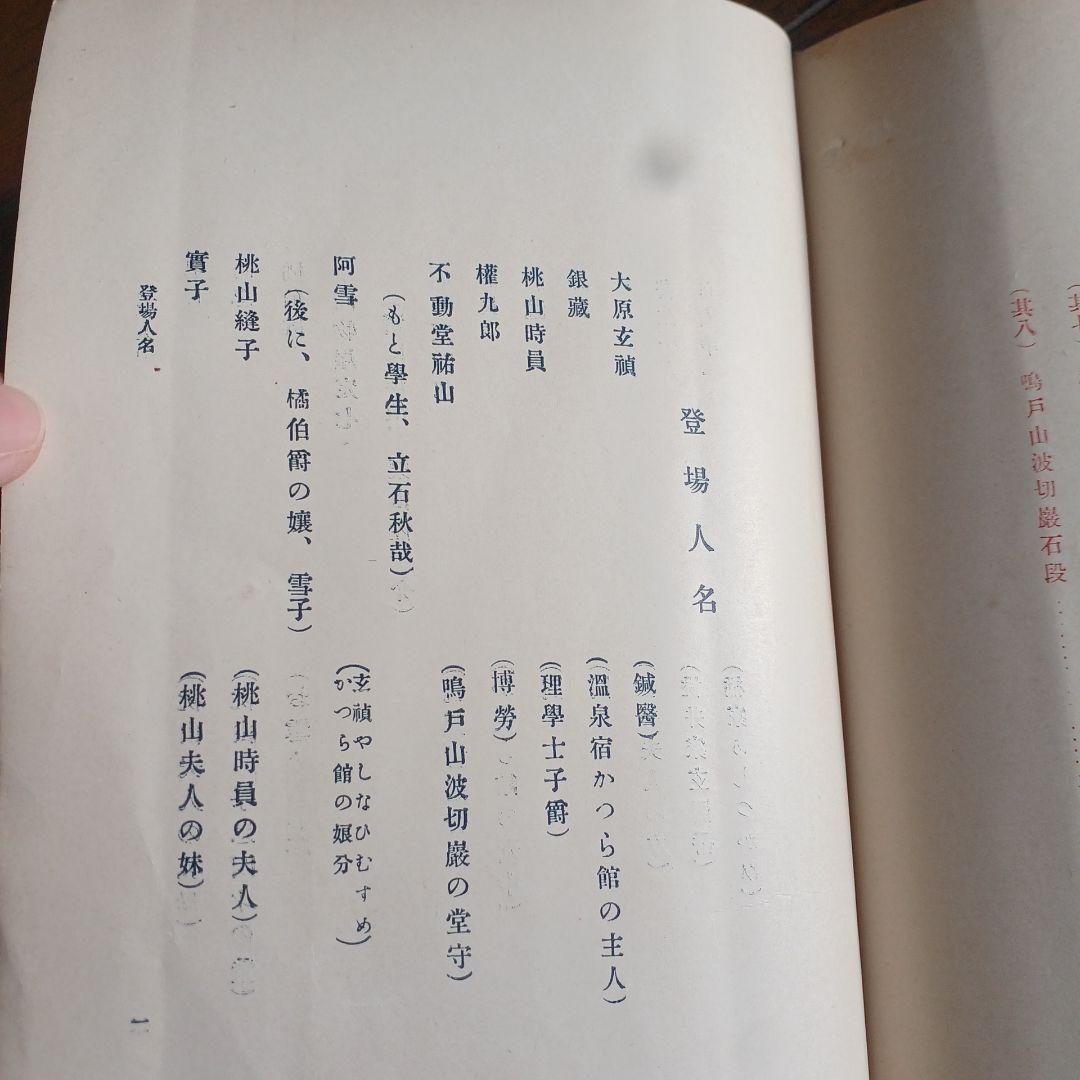 (其八) 鳴戸山波切巖石段
登場人名
大原玄禎 (鍼醫)
銀藏 (溫泉宿かつら館の主人)
桃山時員 (理學士子爵)
權九郎 (博勞)
不動堂祐山 (鳴戸山波切巖の堂守)
(もと學生、立石秋哉)
阿雪 (玄禎やしなひむすめ
かつら館の娘分)
(後に、橘伯爵の孃、雪子)
桃山縫子 (桃山時員の夫人)
實子 (桃山夫人の妹)
登場人名
一